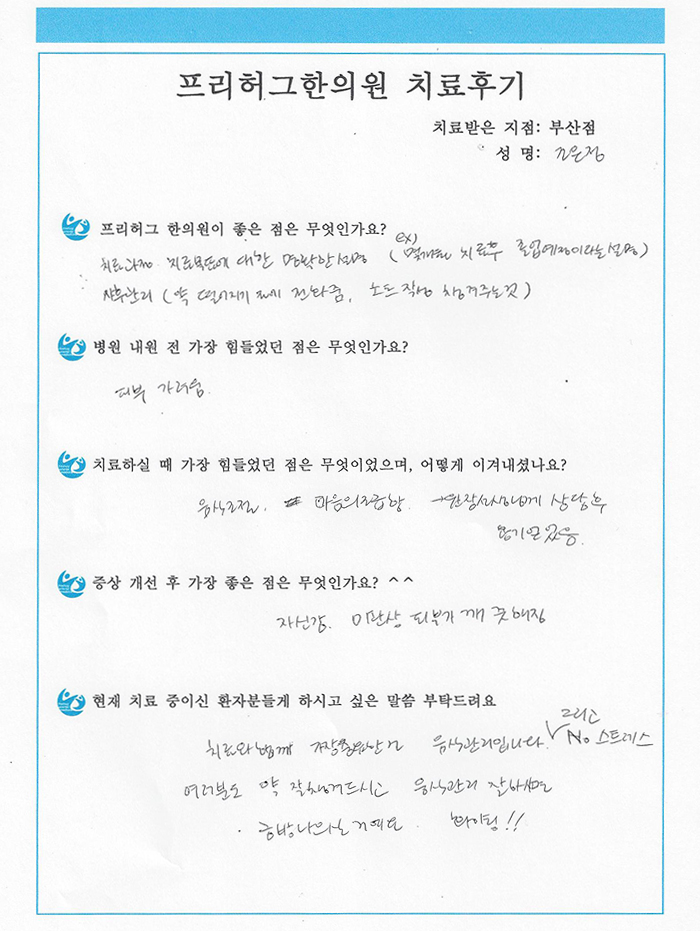 프리허그한의원 치료후기
치료받은 지점: 부산점
성 명: 김은정
프리허그 한의원이 좋은 점은 무엇인가요?
ex)
치료과정 치료목표에 대한 명확한 설명 (몇개월 치료후 졸업예정이라는 설명)
사후관리 (약 떨어지기 전에 전화줌, 노트작성 챙겨주는것)
병원 내원 전 가장 힘들었던 점은 무엇인가요?
피부 가려움.
치료하실 때 가장 힘들었던 점은 무엇이었으며, 어떻게 이겨내셨나요?
음식조절. 마음의조급함. 원장선생님께 상담후
용기얻었음.
증상 개선 후 가장 좋은 점은 무엇인가요? ^^
자신감. 미관상 피부가 깨끗해짐
현재 치료 중이신 환자분들게 하시고 싶은 말씀 부탁드려요
그리고
치료와 함께 가장중요한건 음식관리입니다. No 스트레스
여러분도 약 잘챙겨드시고 음식관리 잘하시면
금방나으실거예요. 화이팅!!